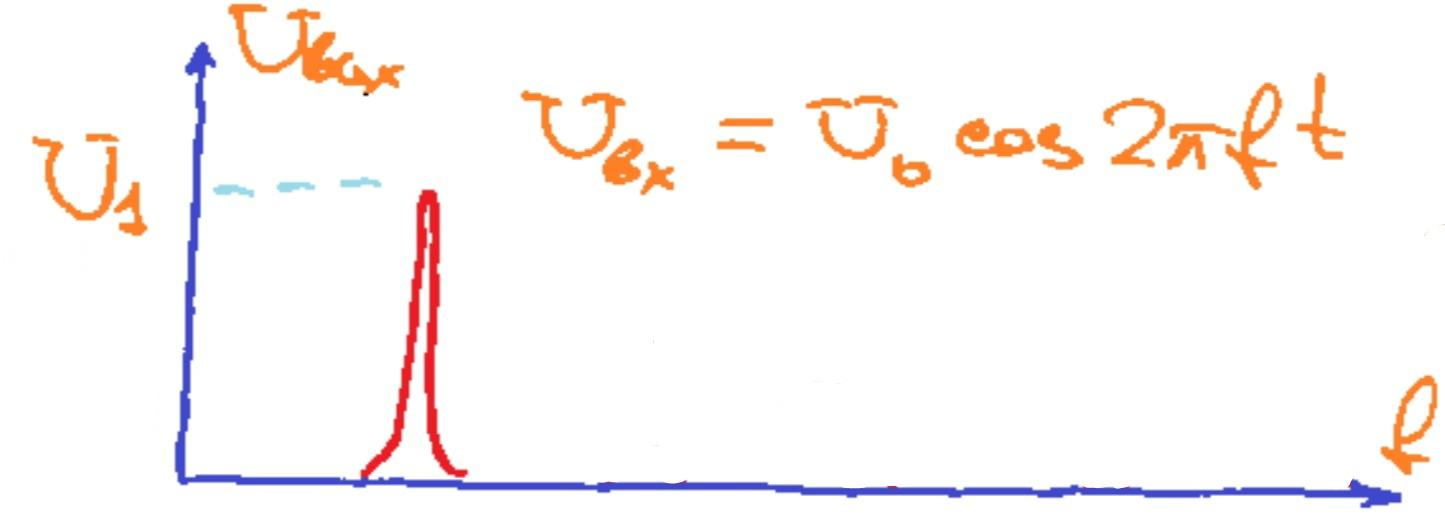 Uвых
Uвх = U₀ cos 2πft
U₁
f